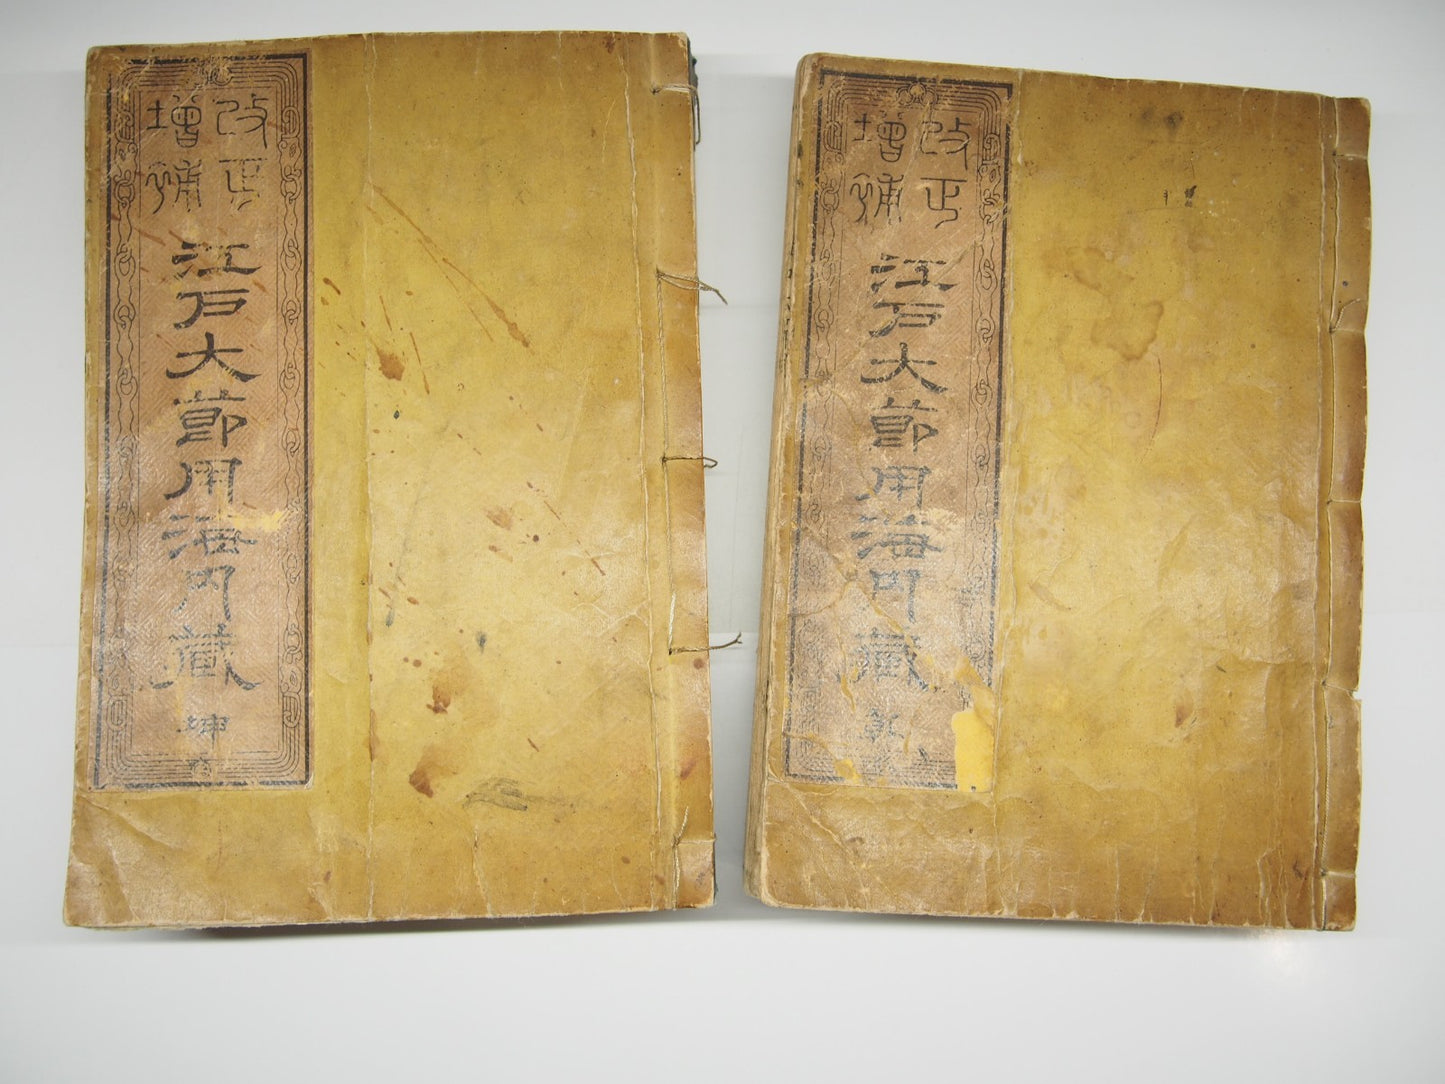 改正
增補
江戸大節用海内蔵
坤
改正
增補
江戸大節用海内蔵
乾